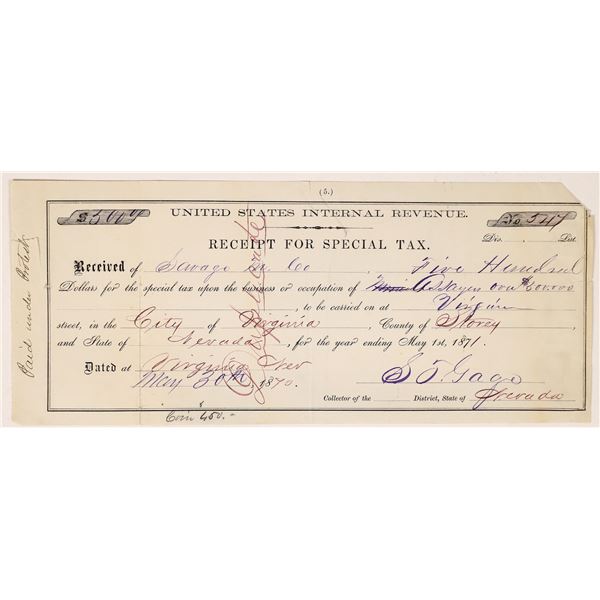 (5.)
$500.00
UNITED STATES INTERNAL REVENUE.
No 547
RECEIPT FOR SPECIAL TAX.
Div. List
Received of Sewage M. Co , Five Hundred
Dollars for the special tax upon the business or occupation of Assayer over
, to be carried on at Virginia
street, in the City of Virginia , County of Storey ,
and State of Nevada , for the year ending May 1st, 1871.
Dated at Virginia Nev
May 20th 1870.
S T. Gage
Collector of the District, State of Nevada
Coin $450.-
Paid under Protest
Duplicate